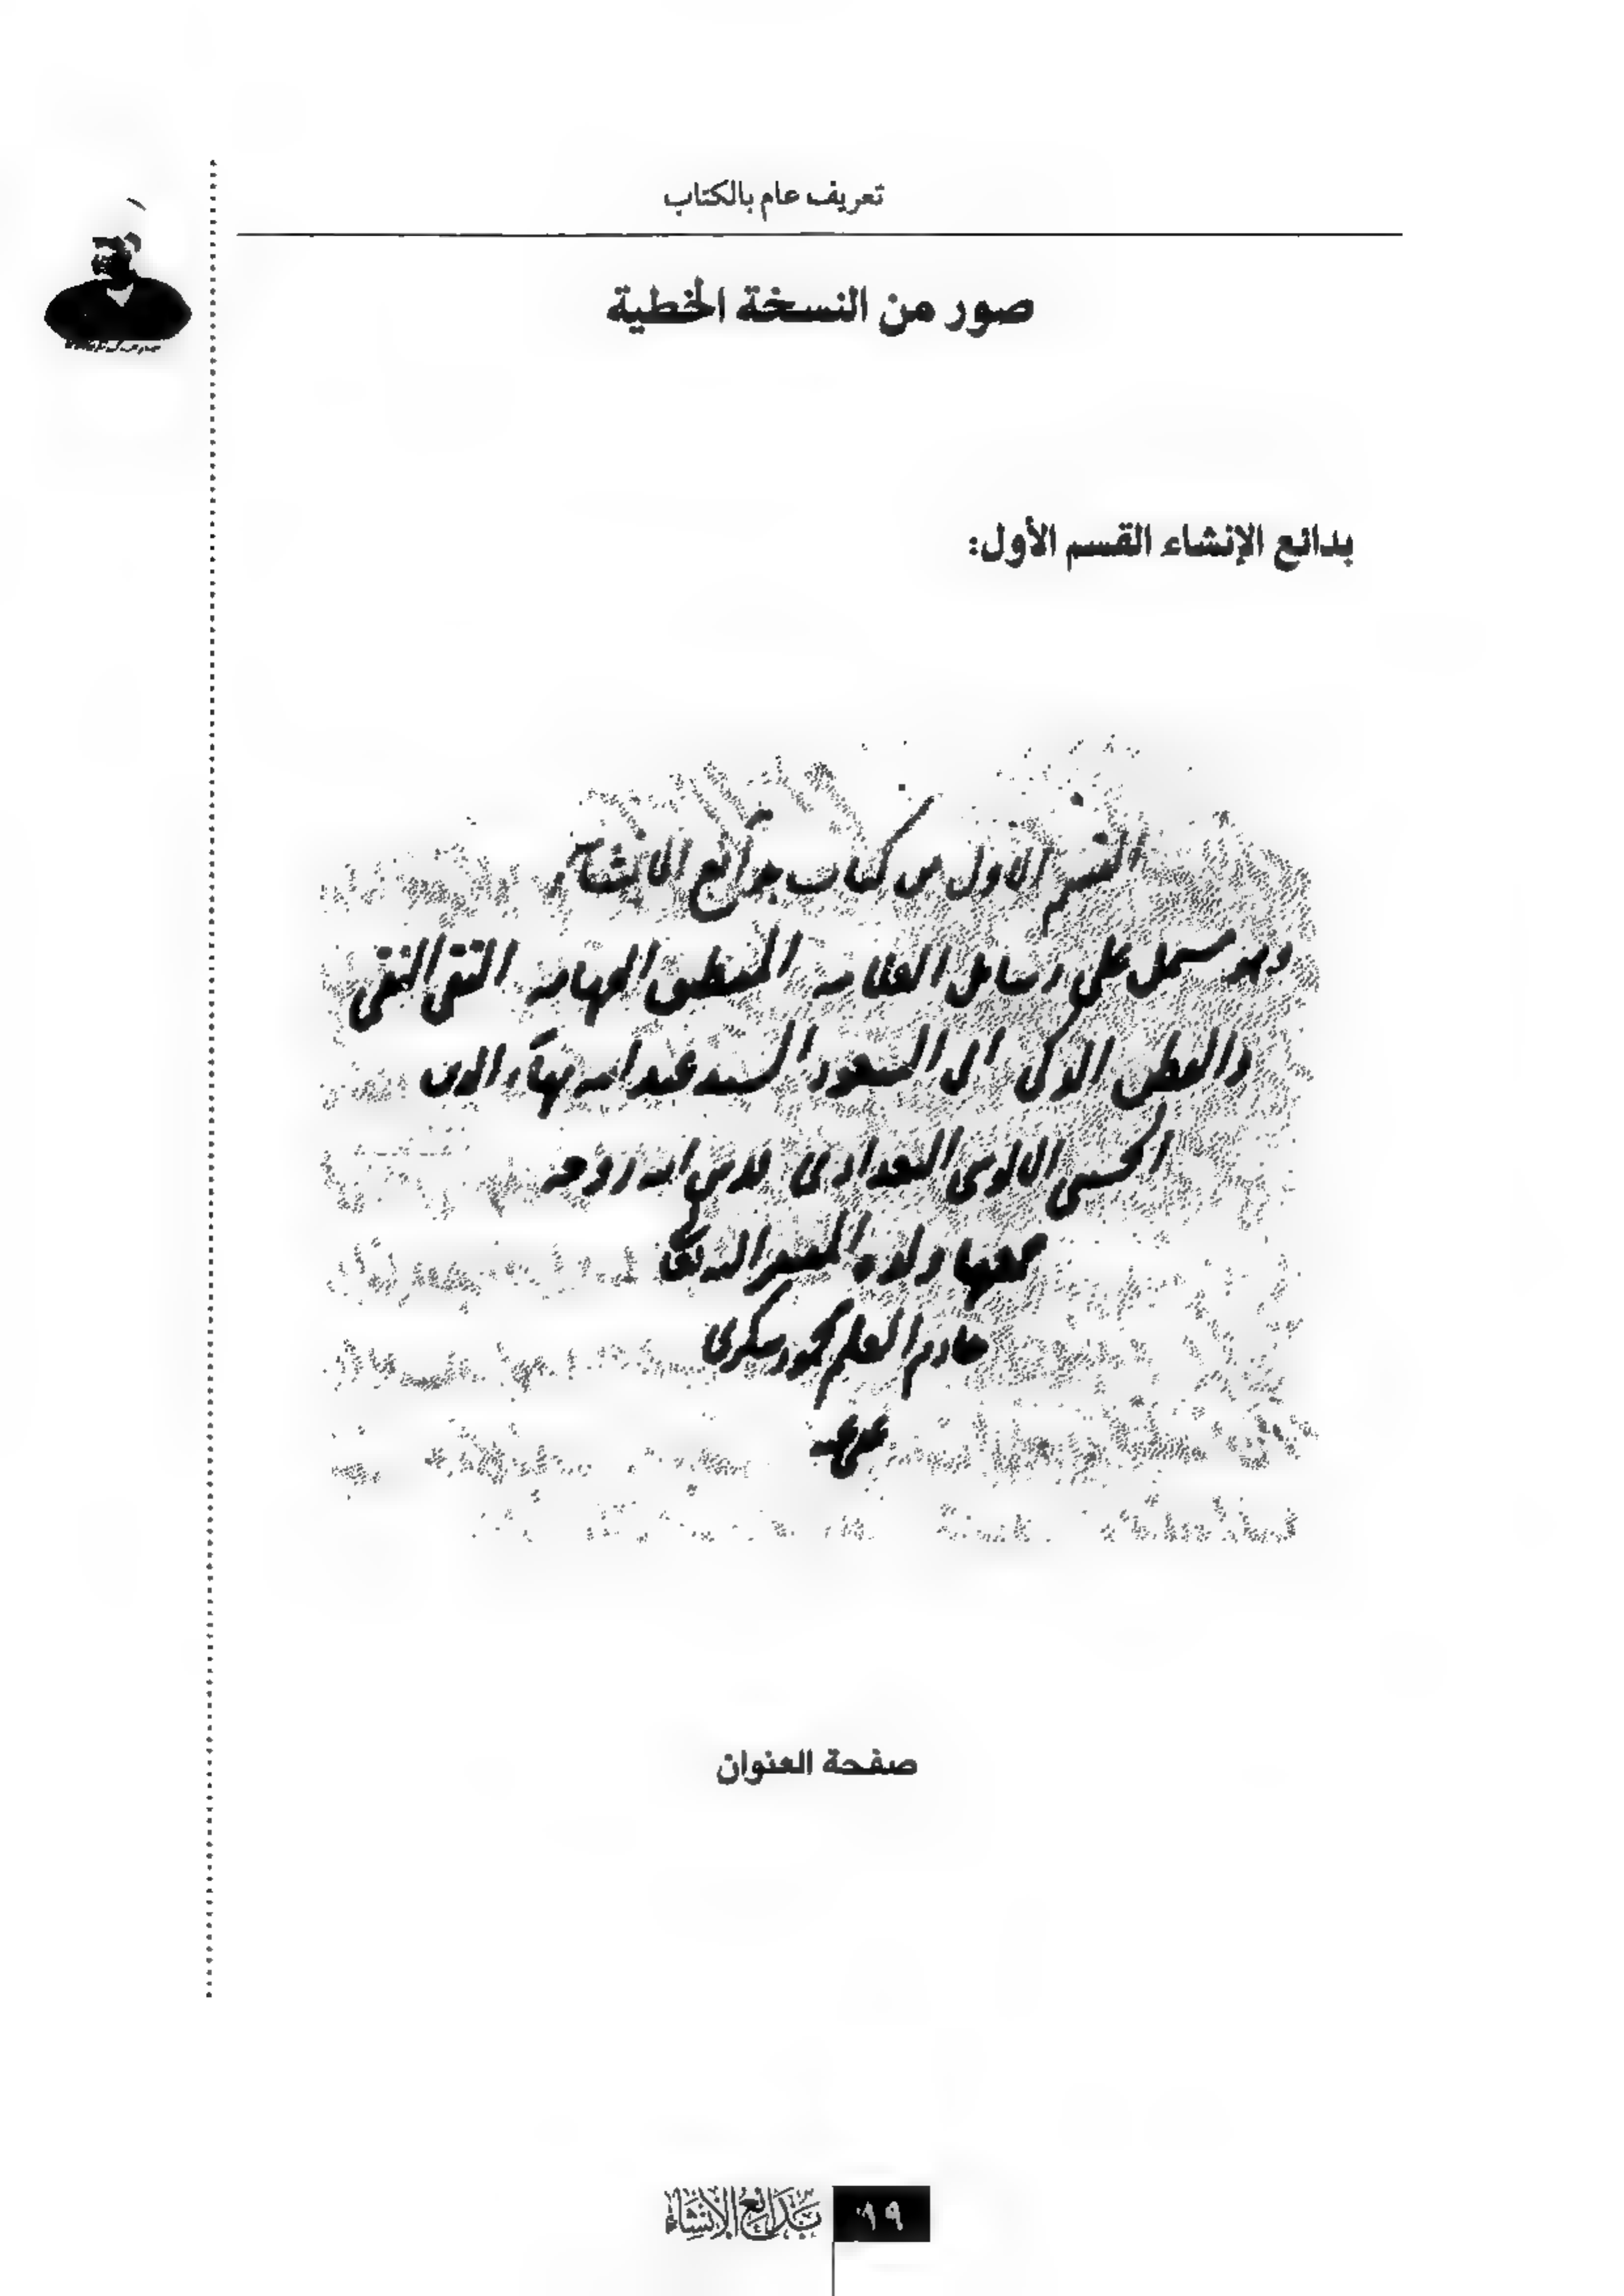 تعريف عام بالكتاب
صور من النسخة الخطية
بدائع الإنشاء القسم الأول:
القسم الاول من كتاب بدآئع الانشآء
وهو مشتمل على رسائل العلامه المنطيق الفهامه التقي النقي
والفطن الذكي ابى السعود السيد عبد الله بهآء الدين
الحسيني الالوسي البغدادي قدس الله روحه
جمعها ولده الفقير اليه تعالى
خادم العلم محمود شكري
عفى عنه
صفحة العنوان
بدائع الإنشاء
١٩